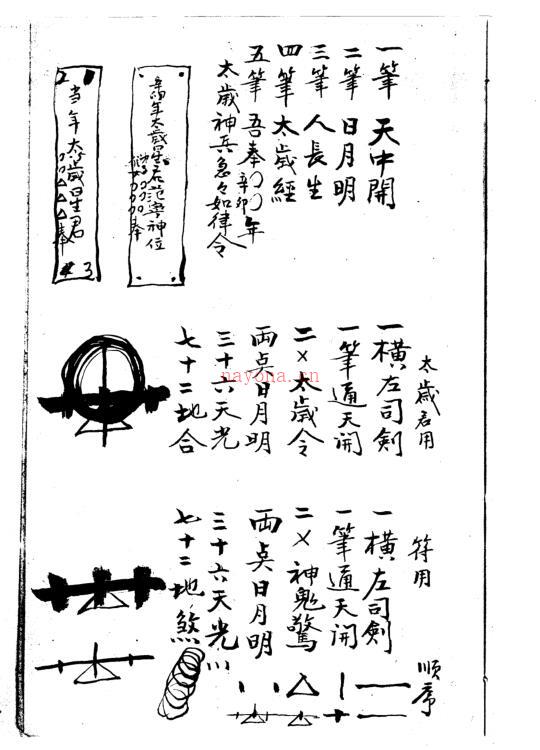 一筆 天中開
二筆 日月明
三筆 人長生
四筆 太歲經
五筆 吾奉〇〇年
辛卯
太歲神兵急々如律令
辛卯年太歲星君范寧神位
奉
当年太歲星君
〇〇△△△△奉
3
太歲君用
一橫左司劍
一筆通天開
二×太歲令
両点日月明
三十六天光
七十二地合
nayona.cn
符用
一橫左司劍
一筆通天開
二×神鬼驚
両点日月明
三十六天光
七十二地煞
順序